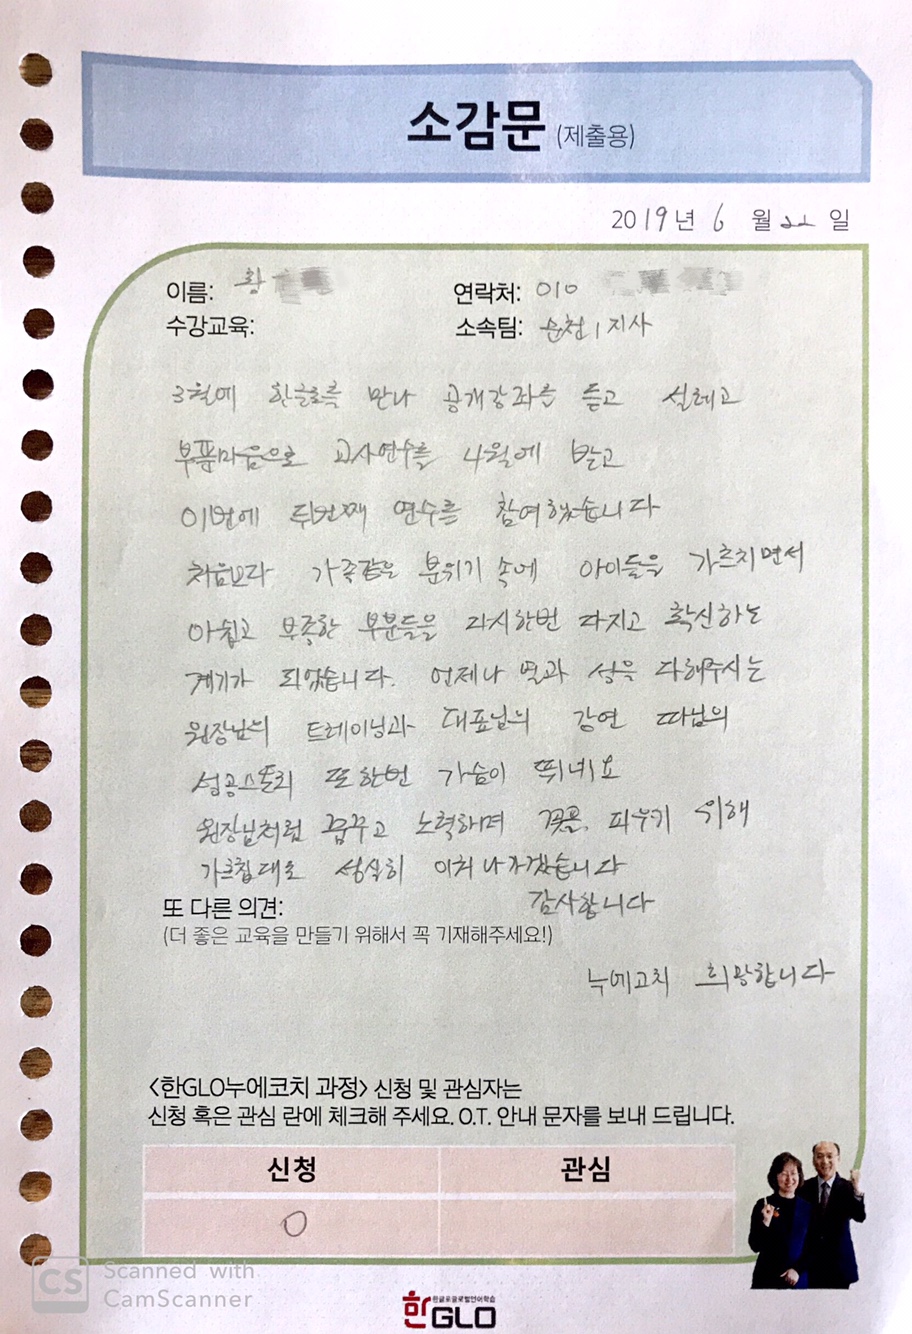 소감문 (제출용)
2019년 6 월 22 일
이름: 황
연락처: 010
수강교육:
소속팀: 순천1지사
3월에 한글로를 만나 공개강좌를 듣고 설레고
부품마음으로 교사연수를 4월에 받고
이번에 두번째 연수를 참여했습니다
처음보다 가족같은 분위기 속에 아이들을 가르치면서
아쉽고 부족한 부분들을 다시한번 다지고 확신하는
계기가 되었습니다. 언제나 열과 성을 다해주시는
원장님의 트레이닝과 대표님의 강연 따님의
성공스토리 또한번 가슴이 뛰네요
원장님처럼 꿈꾸고 노력하며 꽃을 피우기 위해
가르침대로 성실히 이뤄나가겠습니다
감사합니다
또 다른 의견:
(더 좋은 교육을 만들기 위해서 꼭 기재해주세요!)
누에고치 희망합니다
<한GLO누에코치 과정> 신청 및 관심자는
신청 혹은 관심 란에 체크해 주세요. O.T. 안내 문자를 보내 드립니다.
신청 관심
O
CS Scanned with
CamScanner
한글로글로벌언어학습
한GLO